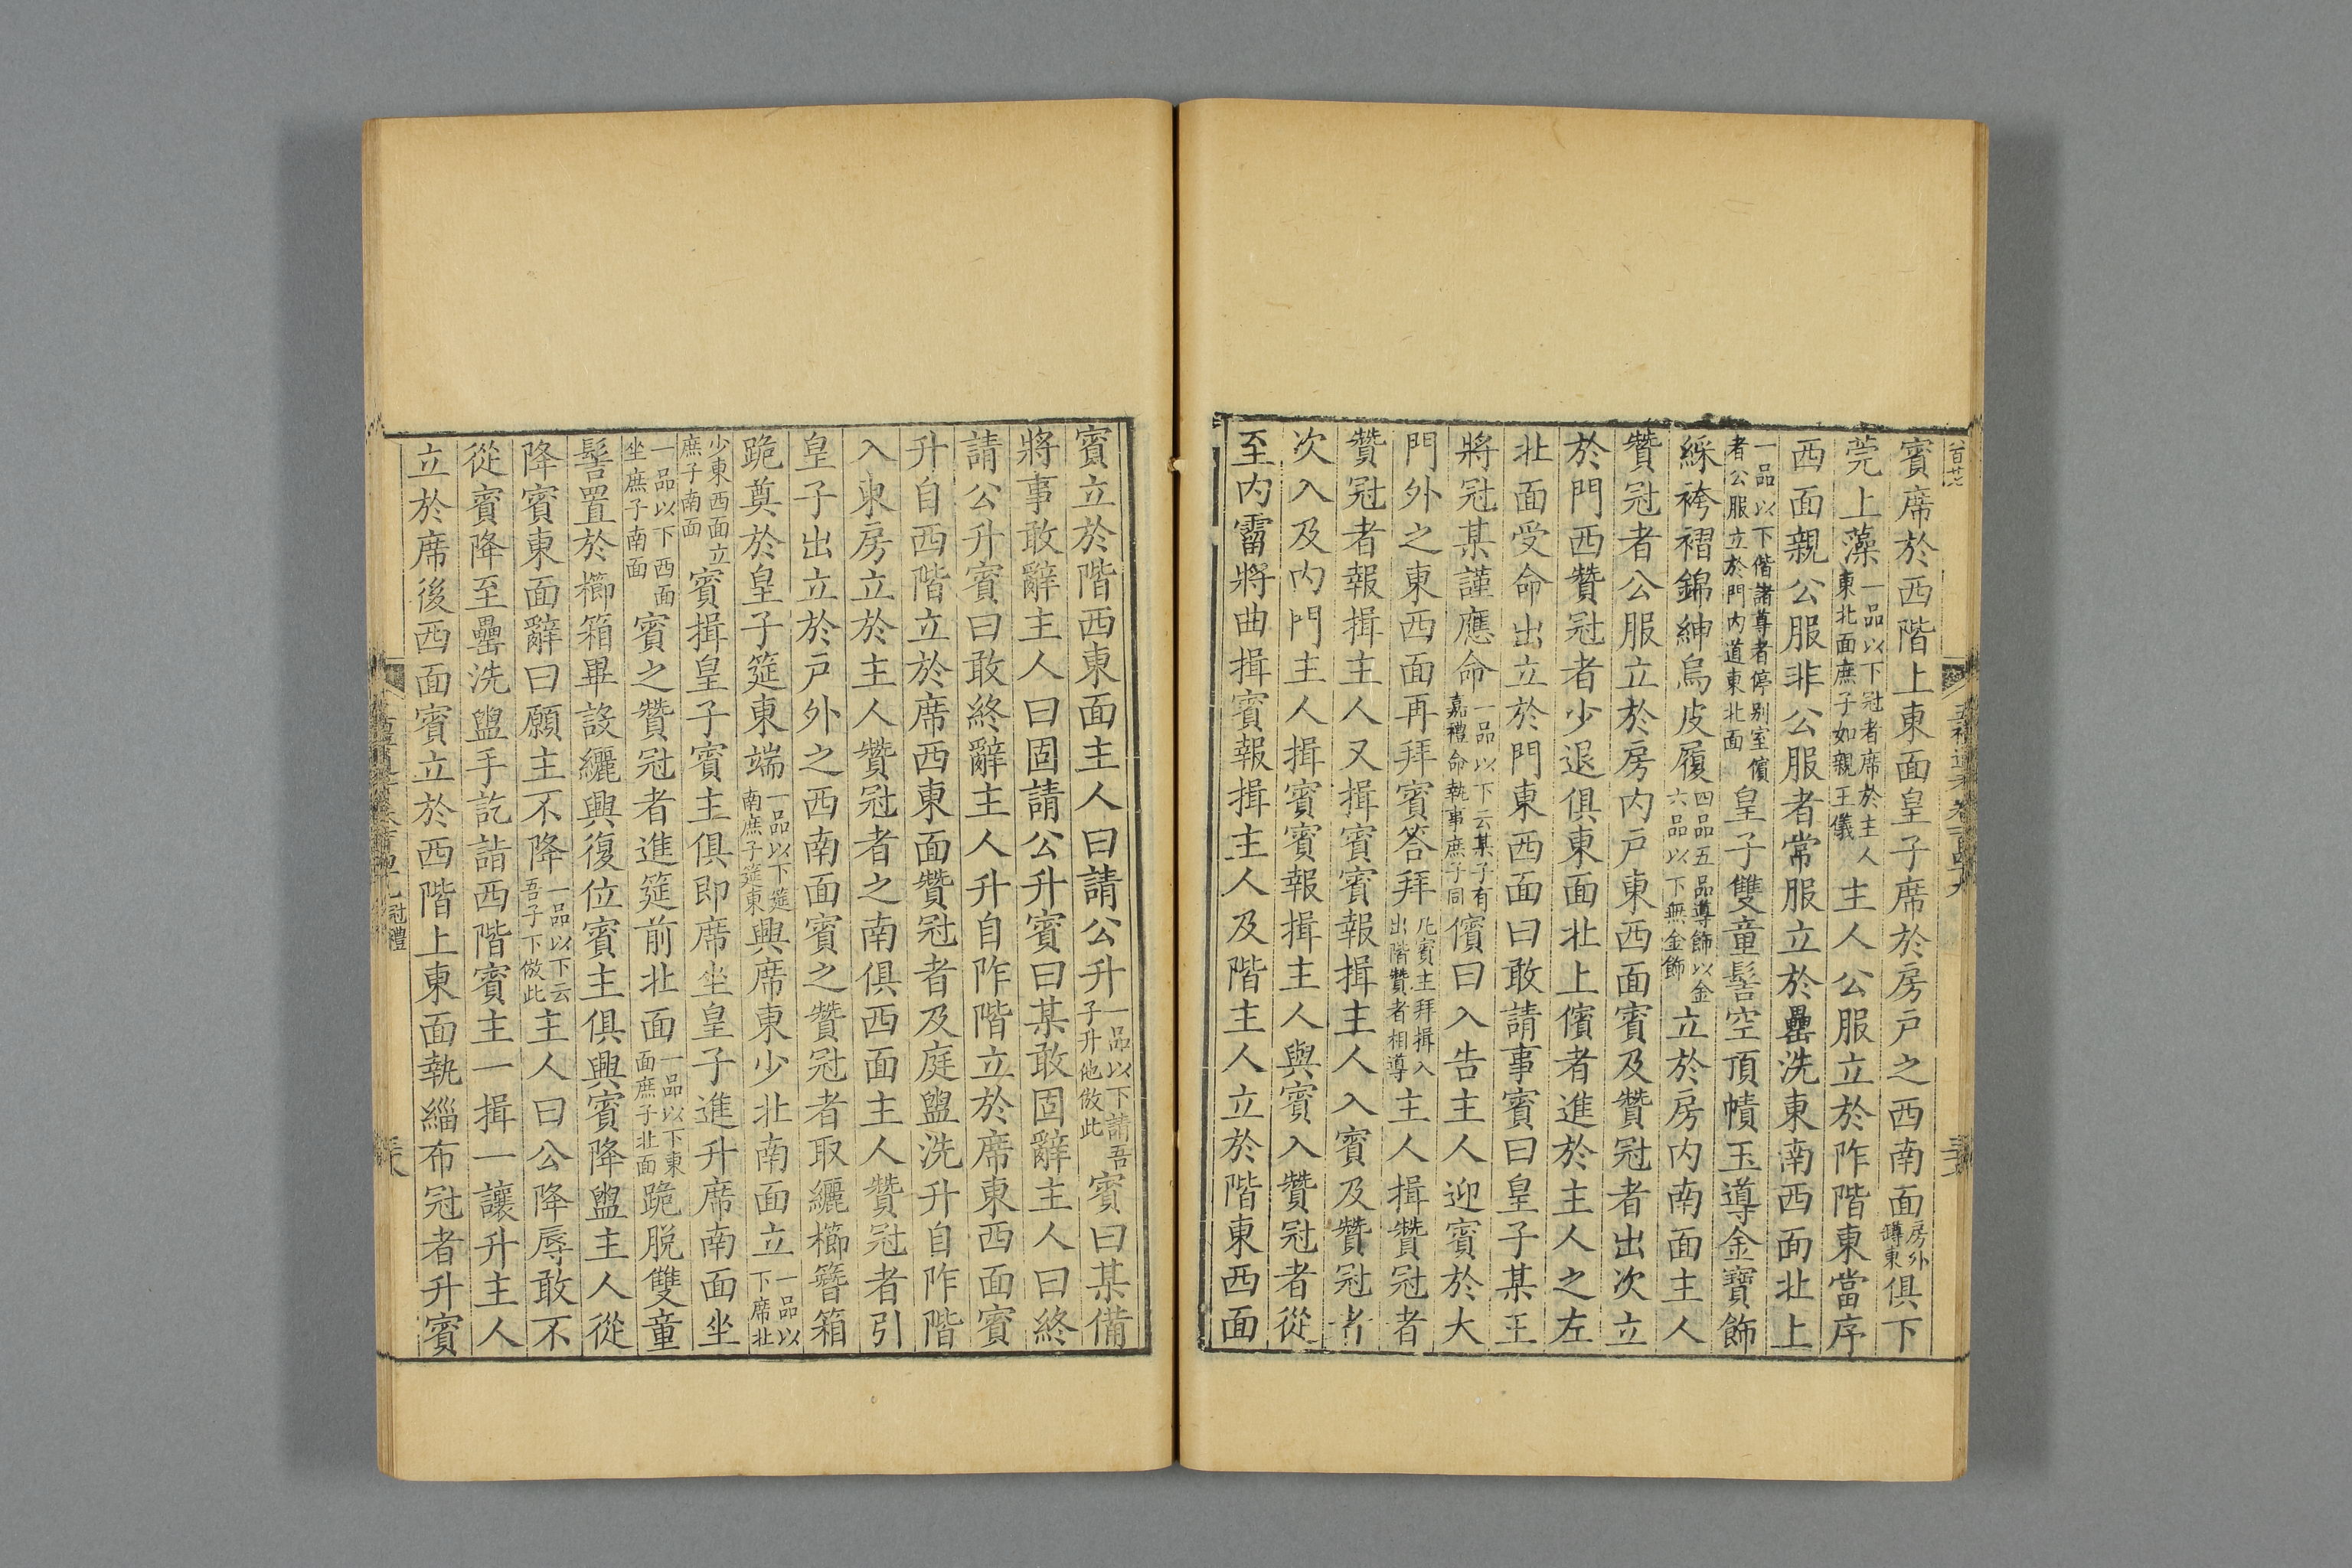 賓席於西階上東面皇子席於房戶之西南面房外罇東俱下
莞上藻一品以下冠者席於主人東北面庶子如親王儀主人公服立於阼階東當序
西面親公服非公服者常服立於罍洗東南西面北上
一品以下偕諸尊者停別室儐者公服立於門內道東北面皇子雙童髻空頂幘玉導金寶飾
綵袴褶錦紳烏皮履四品五品導飾以金六品以下無金飾立於房內南面主人
贊冠者公服立於房內戶東西面賓及贊冠者出次立
於門西贊冠者少退俱東面北上儐者進於主人之左
北面受命出立於門東西面曰敢請事賓曰皇子某王
將冠某謹應命一品以下云某子有嘉禮命執事庶子同儐曰入告主人迎賓於大
門外之東西面再拜賓答拜凡賓主拜揖入出階贊者相導主人揖贊冠者
贊冠者報揖主人又揖賓賓報揖主人入賓及贊冠者
次入及內門主人揖賓賓報揖主人與賓入贊冠者從
至內霤將曲揖賓報揖主人及階主人立於階東西面
賓立於階西東面主人曰請公升一品以下請吾子升他倣此賓曰某備
將事敢辭主人曰固請公升賓曰某敢固辭主人曰終
請公升賓曰敢終辭主人升自阼階立於席東西面賓
升自西階立於席西東面贊冠者及庭盥洗升自阼階
入東房立於主人贊冠者之南俱西面主人贊冠者引
皇子出立於戶外之西南面賓之贊冠者取纚櫛簪箱
跪奠於皇子筵東端一品以下筵南庶子筵東興席東少北南面立一品以下席北
少東西面立庶子南面賓揖皇子賓主俱即席坐皇子進升席南面坐
一品以下西面坐庶子南面賓之贊冠者進筵前北面一品以下東面庶子北面跪脫雙童
髻置於櫛箱畢設纚興復位賓主俱興賓降盥主人從
降賓東面辭曰願主不降一品以下云吾子下倣此主人曰公降辱敢不
從賓降至罍洗盥手訖詣西階賓主一揖一讓升主人
立於席後西面賓立於西階上東面執緇布冠者升賓